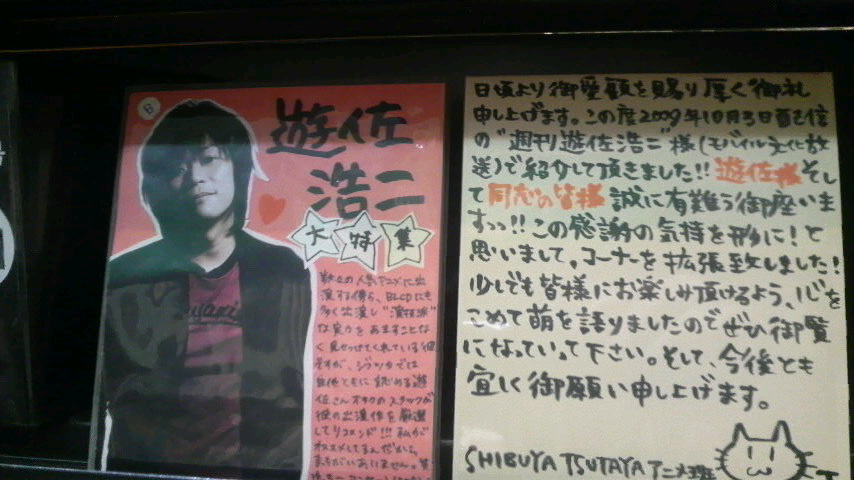 B
遊佐
浩二
大特集
数々の人気アニメに出
演する傍ら、BLCDにも
多く出演し"演技派"
な実力をあますことな
く見せつけてくれている彼
ですが、シブツタでは
自他ともに認める遊
佐さんオタクのスタッフが
彼の出演作を厳選
してリコメンド!!!私が
オススメしてるんだから
まちがいありません。
日頃より御愛顧を賜り厚く御礼
申し上げます。この度2009年10月5日配信
の"週刊遊佐浩二"様(モバイル文化放
送)で紹介して頂きました!!遊佐様そし
て同志の皆様誠に有難う御座いま
すっっ!!この感謝の気持を形に!と
思いまして、コーナーを拡張致しました!
少しでも皆様にお楽しみ頂けるよう、心を
こめて萌を語りましたのでぜひ御覧
になっていって下さい。そして、今後とも
宜しく御願い申し上げます。
SHIBUYA TSUTAYA アニメ班